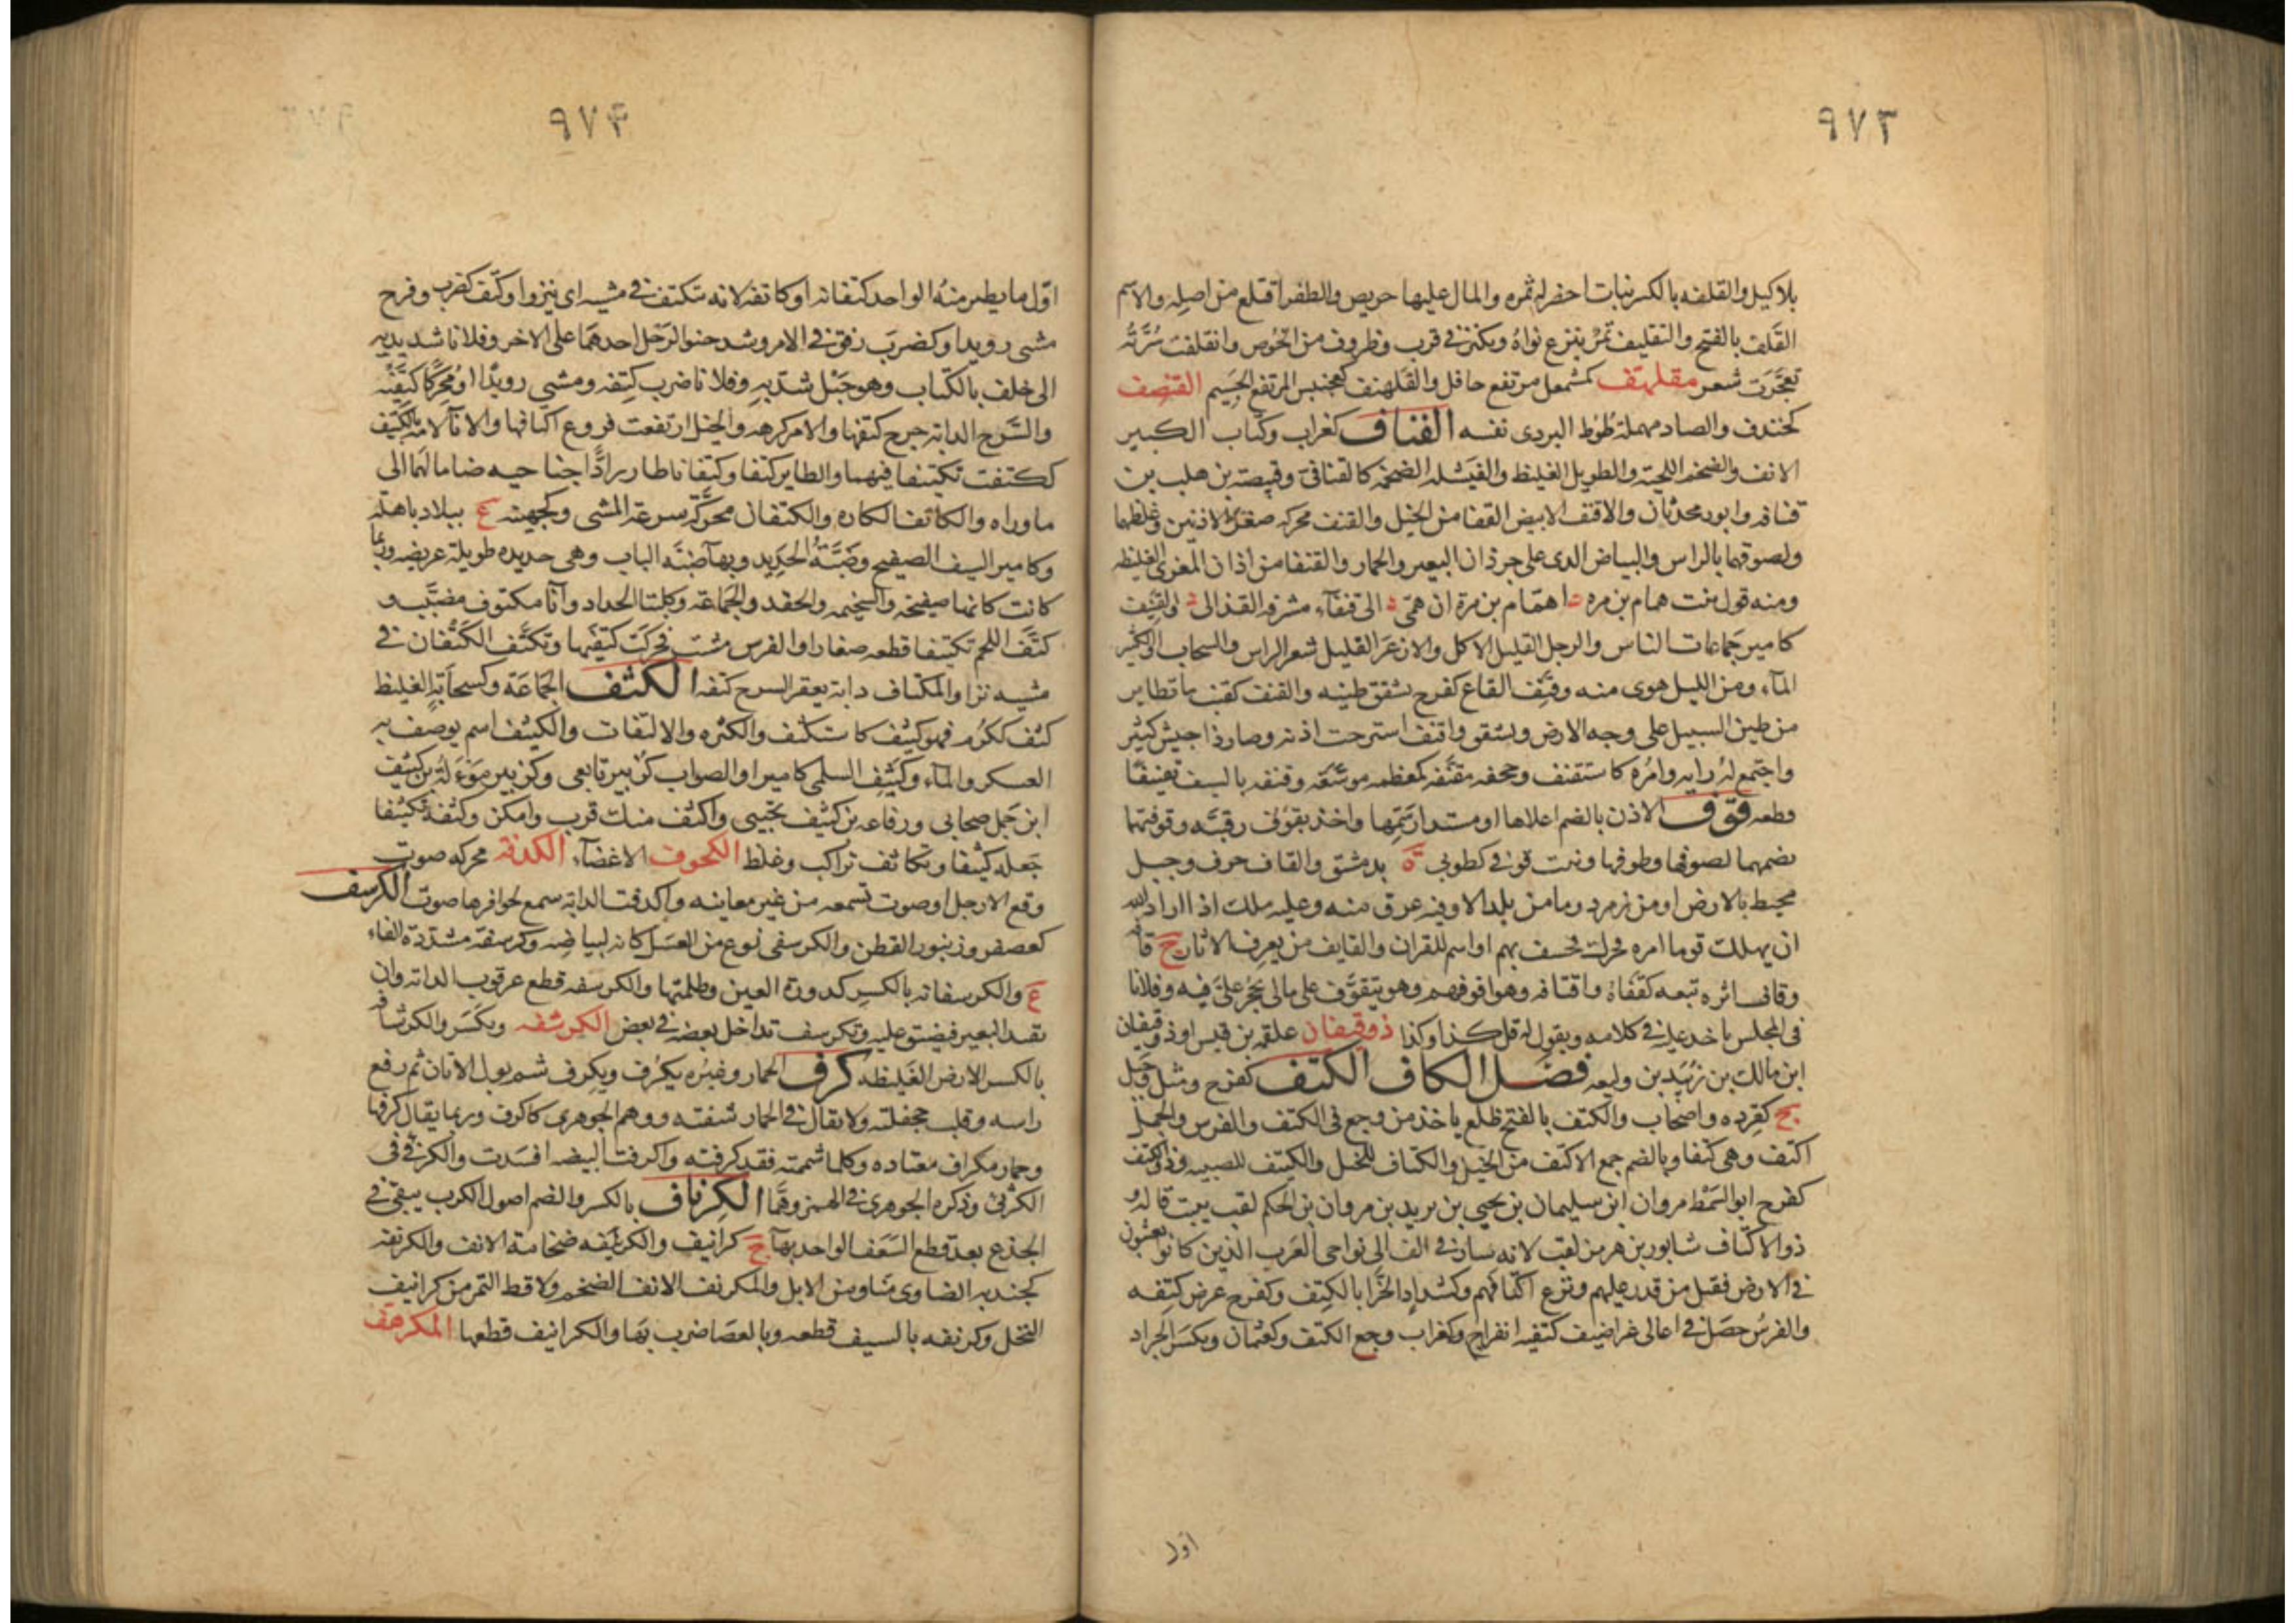 ٩٧٣
بلا كيل والقلفه بالكسر نبات اخضر له ثمره والمال عليها حريص والظفر اقتلع من اصله والاسم
القلف بالفتح والتقليف تمر ينزع نواه ويكنز في قرب وظروف من الخوص وانقلفت سرته
تعجرت شعر مقلهف كمشمعل مرتفع حافل والقلهنف كعجنس المرتفع الجسيم القنصف
كخندف والصاد مهملة طوط البردى نفسه القناف كغراب وكتاب الكبير
الانف والضخم اللحية والطويل الغليظ والفيشله الضخمه كالقنافى وقبيصة بن هلب بن
قنافه وابوه محدثان والاقنف الابيض القفا من الخيل والقنف محركه صغر الاذنين وغلظهما
ولصوقهما بالراس والبياض الذى على جرذان البعير والحمار والقنفا من اذان المعزى الغليظه
ومنه قول بنت همام بن مره اهمام بن مرة ان همى الى قنفآء مشرفه القذالى والقنيف
كامير جماعات الناس والرجل القليل الاكل والازعر القليل شعر الراس والسحاب الكثير
المآء ومن الليل هوى منه وقنف القاع كفرح تشقق طينه والقنف كقنب ما تطاير
من طين السيل على وجه الارض وتشقق واقنف استرخت اذنه وصار ذا جيش كثير
واجتمع له رايه وامره كاستقنف وحجفه مقنفه كمعظمه موسعه وقنفه بالسيف تقنيفا
قطعه قوف الاذن بالضم اعلاها او مستدار سمها واخذ بقوف رقبته وقوفتها
بضمهما لصوفها وطوفها وبيت قوفى كطوبى ة بدمشق والقاف حرف وجبل
محيط بالارض او من زمرد وما من بلد الا وفيه عرق منه وعليه ملك اذا اراد الله
ان يهلك قوما امره فحرك فخسف بهم او اسم للقران والقايف من يعرف الاثار ج قافه
وقاف اثره تبعه كقفاه واقتافه وهو اقوفهم وهو يتقوف على مالى يحجر على فيه وفلانا
فى المجلس ياخذ عليه في كلامه ويقول له قل كذا وكذا ذو قيفان علقمه بن قيس او ذو قيفان
ابن مالك بن زبيد بن وليعه فصل الكاف الكتف كفرح ومثل وجبل
ج كقرده واصحاب والكتف بالفتح ظلع ياخذ من وجع فى الكتف والفرس والجمل
اكتف وهى كتفا وبالضم جمع الاكتف من الخيل والكتاف للخيل والكيتف للصبيه وذو الكتف
كفرح ابو السمط مروان ابن سليمان بن يحيى بن يزيد بن مروان بن الحكم لقب ببيت قاله و
ذو الاكتاف شابور بن هرمز لقب لانه سار في الف الى نواحى العرب الذين كانو يعيثون
في الارض فقتل من قدر عليهم ونزع اكتافهم وكشداد الحزا بالكتف وكفرح عرض كتفه
والفرس حصل في اعالى غراضيف كتفيه انفراج وكغراب وجع الكتف وكعثمان ويكسر الجراد
اول
٩٧٤
اول ما يطير منه الواحد كتفانه او كاتفه لانه يتكتف في مشيه اى ينزو او كتف كفرب وفرح
مشى رويدا وكضرب رفق في الامر وشد حنو الرحل احدهما على الاخر وفلانا شد يديه
الى خلف بالكتاب وهو حبل شد به وفلانا ضرب كتفه ومشى رويدا او محركا كتفيه
والسرج الدابه جرح كتفها والامر كرهه والخيل ارتفعت فروع اكتافها والانآء لامه بالكتيف
ككتفت تكتيفا فيهما والطاير كتفا وكتفانا طار رادا جناحيه ضاما لهما الى
ما وراه والكاتف الكاره والكتفان محركة سرعة المشى وكجهينه ع ببلاد باهله
وكامير السيف الصفيح وضبة الحديد وبهآ ضبه الباب وهى حديده طويلة عريضه وربما
كانت كانها صفيحه والسخيمه والحقد والجماعة وكلبتا الحداد وآنا مكتوف مضبب و
كتف اللحم تكتيفا قطعه صغارا والفرس مشت فحركت كتفيها وتكتف الكتفان في
مشيه نزا والمكتاف دابة يعقر السرح كتفه الكثف الجماعة وكسحابه الغليظ
كثف ككرم فهو كثيف كاستكثف والكثره والالتفاف والكثيف اسم يوصف به
العسكر والمآء وكثيف السلمى كامير او الصواب كزبير تابعى وكزبير موءلة بن كثيف
ابن جمل صحابى ورفاعه بن كثيف تجيبى واكثف منك قرب وامكن وكثفه تكثيفا
جعله كثيفا وتكاثف تراكب وغلظ الكحوف الاعضآء الكدفه محركه صوت
وقع الارجل او صوت تسمعه من غير معاينه واكدفت الدابة سمع لحوافرها صوت الكرسف
كعصفر وزنبور القطن والكرسفى نوع من العسل كانه لبياضه وكرسفه مشددة الفاء
ع والكرسفانه بالكسر كدورة العين وظلمتها والكرسفه قطع عرقوب الدابه وان
تقيد البعير فيضيق عليه وتكرسف تداخل بعضه في بعض الكرشفه ويكسر والكرشافه
بالكسر الارض الغليظه كرف الحمار وغيره يكرف ويكرف شم بول الاتان ثم رفع
راسه وقلب جحفلته ولا يقال في الحمار شفته ووهم الجوهرى كاكرف وربما يقال كرفها
وحمار مكراف معتاده وكلما شممته فقد كرفته واكرفت البيضه افسدت والكرفى فى
الكرثى وذكره الجوهرى في الهمز وهما الكرناف بالكسر والضم اصول الكرب يبقى في
الجذع بعد قطع السعف الواحد بهآ ج كرانيف والكرنيفه ضخامة الانف والكرنفه
كجندبه الضاوى منا ومن الابل والمكرنف الانف الضخم ولاقط التمر من كرانيف
النخل وكرنفه بالسيف قطعه وبالعصا ضرب بها والكرانيف قطعها المكرهف